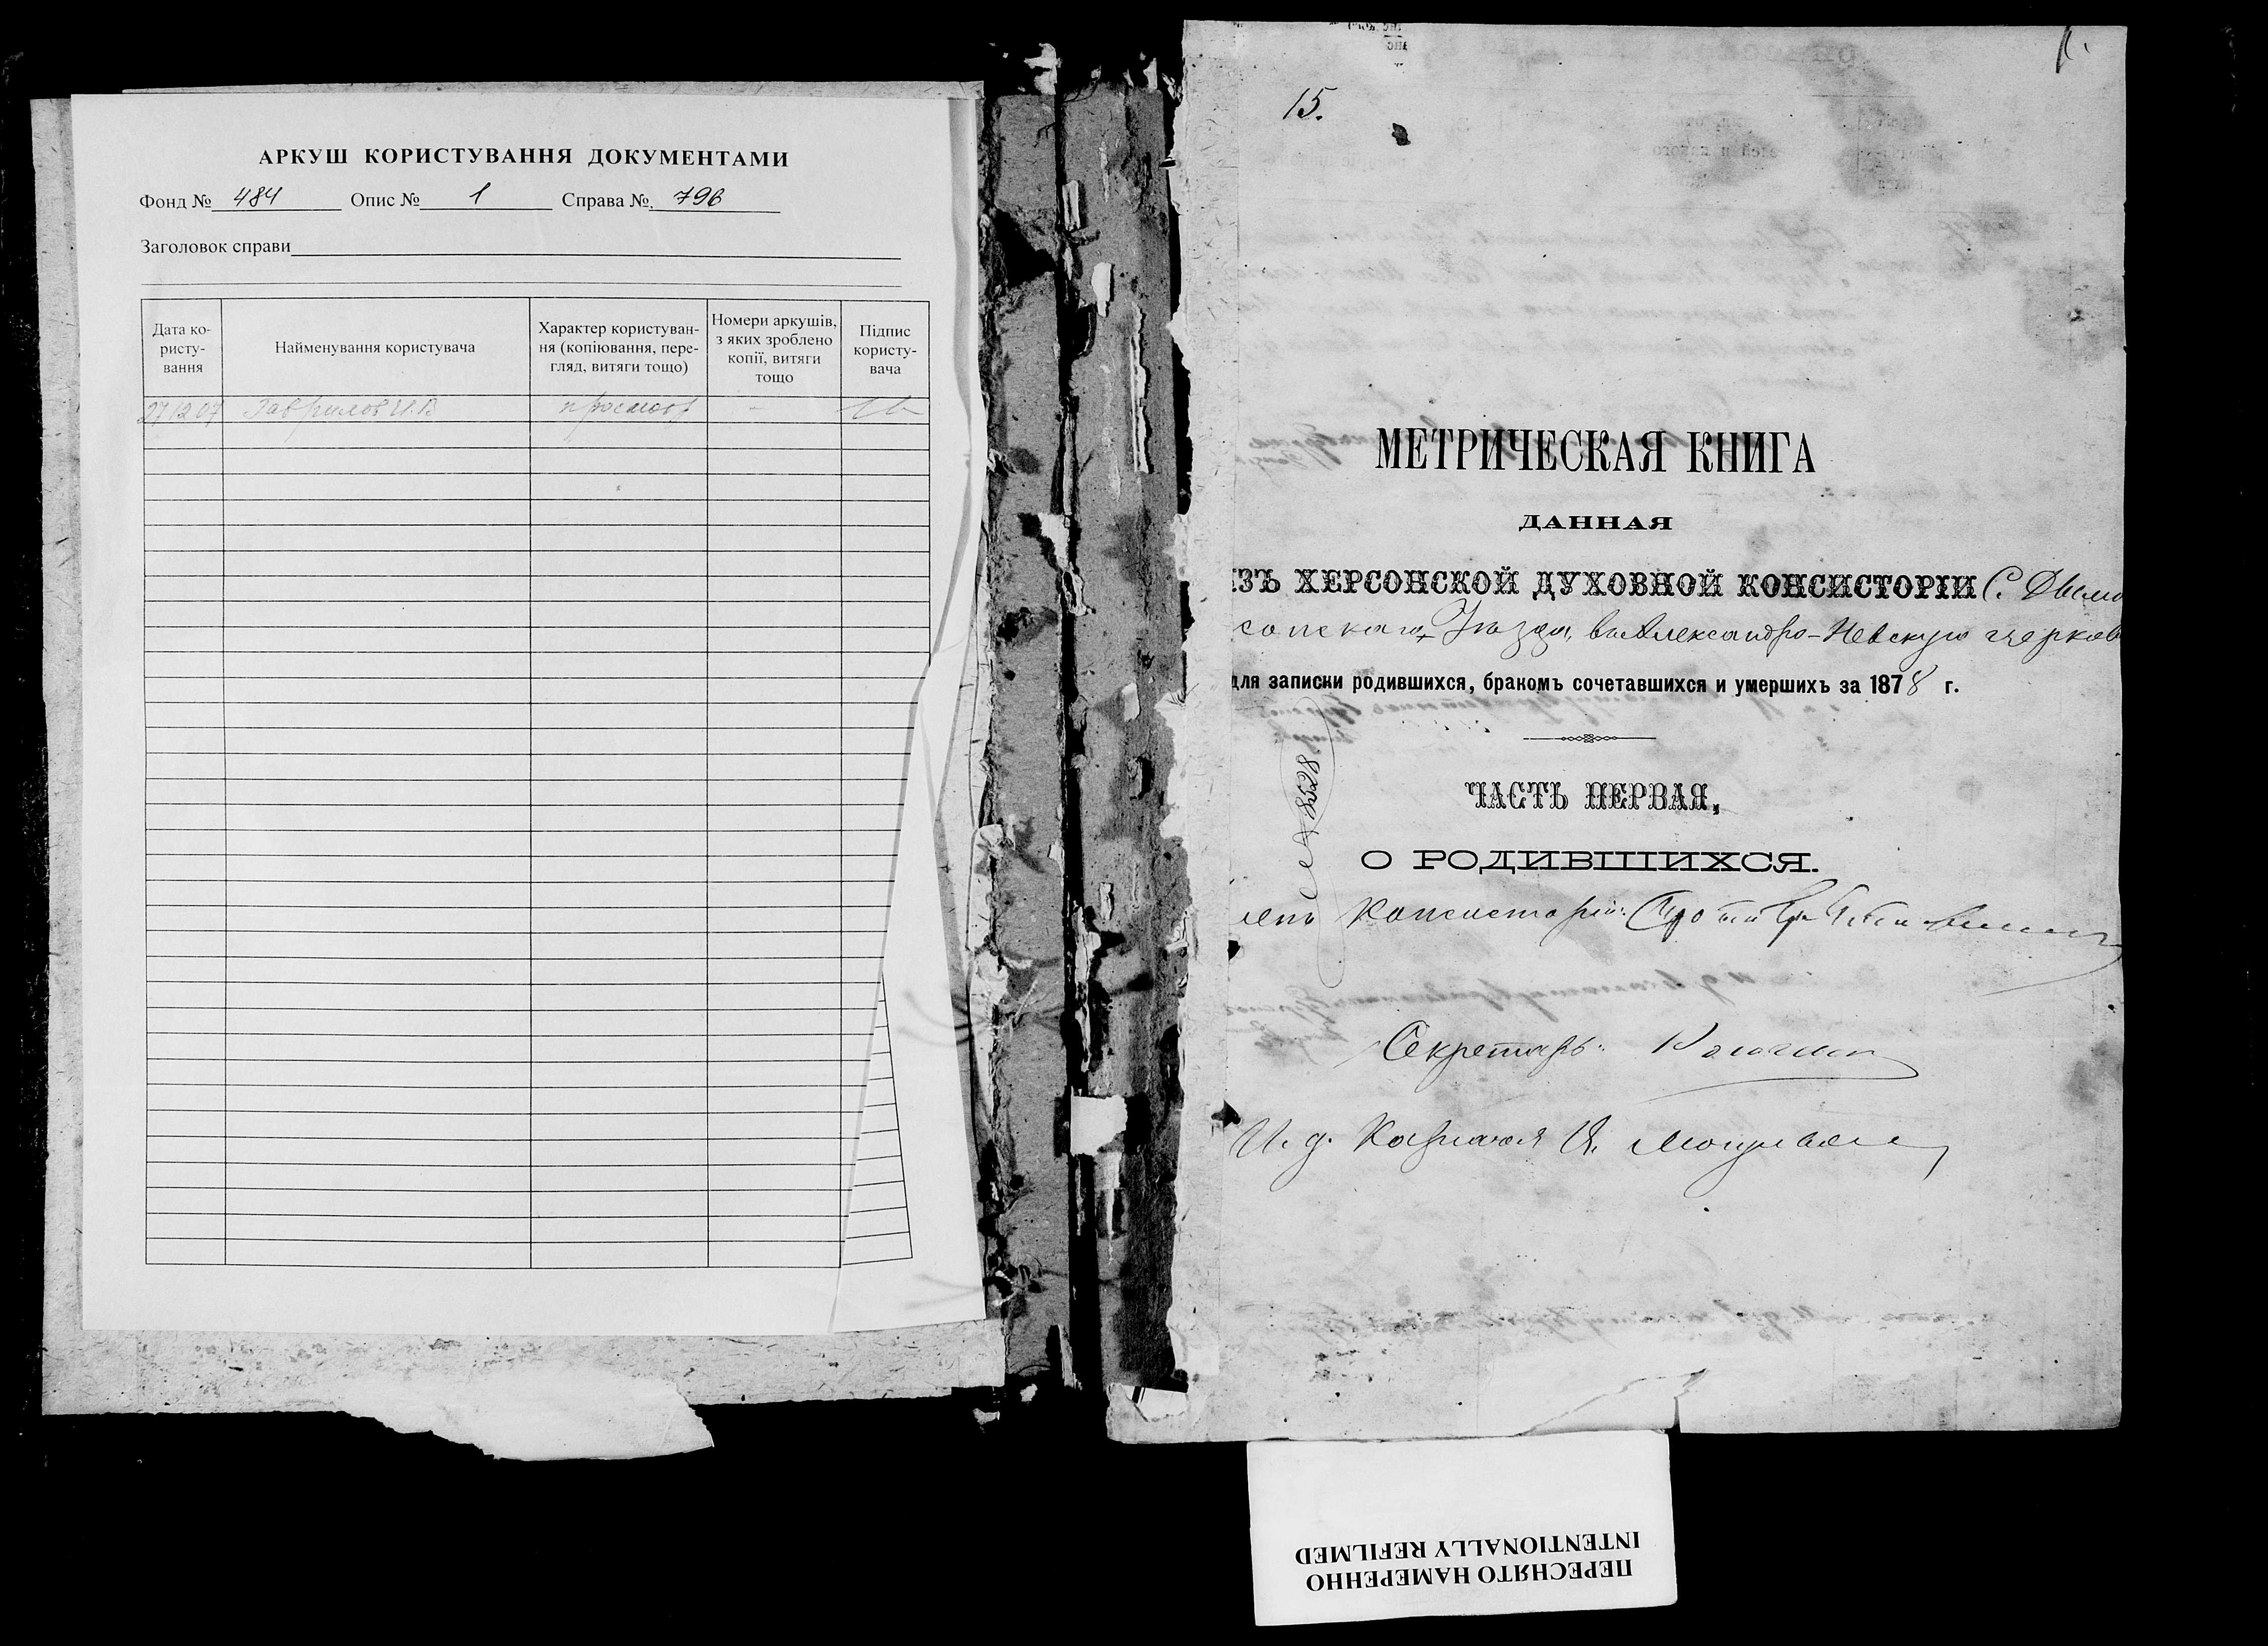 АРКУШ КОРИСТУВАННЯ ДОКУМЕНТАМИ
Фонд № 484 Опис № 1 Справа № 796
Заголовок справи
Дата ко-
ристу-
вання
Найменування користувача
Характер користуван-
ня (копіювання, пере-
гляд, витяги тощо)
Номери аркушів,
з яких зроблено
копії, витяги
тощо
Підпис
користу-
вача
27 12 07 Гаврилов И.В просмотр -
15.
МЕТРИЧЕСКАЯ КНИГА
ДАННАЯ
ИЗЪ ХЕРСОНСКОЙ ДУХОВНОЙ КОНСИСТОРІИ С.
сонскаго Уѣзда, въ Александро-Невскую церковь
для записки родившихся, бракомъ сочетавшихся и умершихъ за 1878 г.
8528
ЧАСТЬ ПЕРВАЯ,
О РОДИВШИХСЯ.
ленъ Консисторіи:
Секретарь:
И. д. Казначея
ПЕРЕСНЯТО НАМЕРЕННО
INTENTIONALLY REFILMED